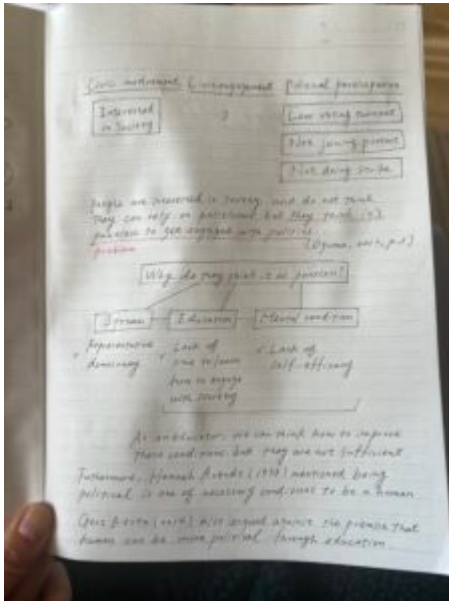 Civic involvement Civic engagement Political participation
Interested in Society
?
Low voting turnout
Not joining protest
Not doing strike
People are interested in society and do not think
they can rely on politicians but they think it's
pointless to get engaged with politics.
problem
Why do they think it as pointless?
System Education Mental condition
Representative democracy
Lack of time to learn how to engage with society
Lack of self-efficacy
As an educator, we can think how to improve
these conditions, but they are not sufficient
Furthermore, Hannah Arendt (1958) mentioned being
political is one of necessary conditions to be a human.
Gert Biesta also argued against the premise that
human can be more political through education